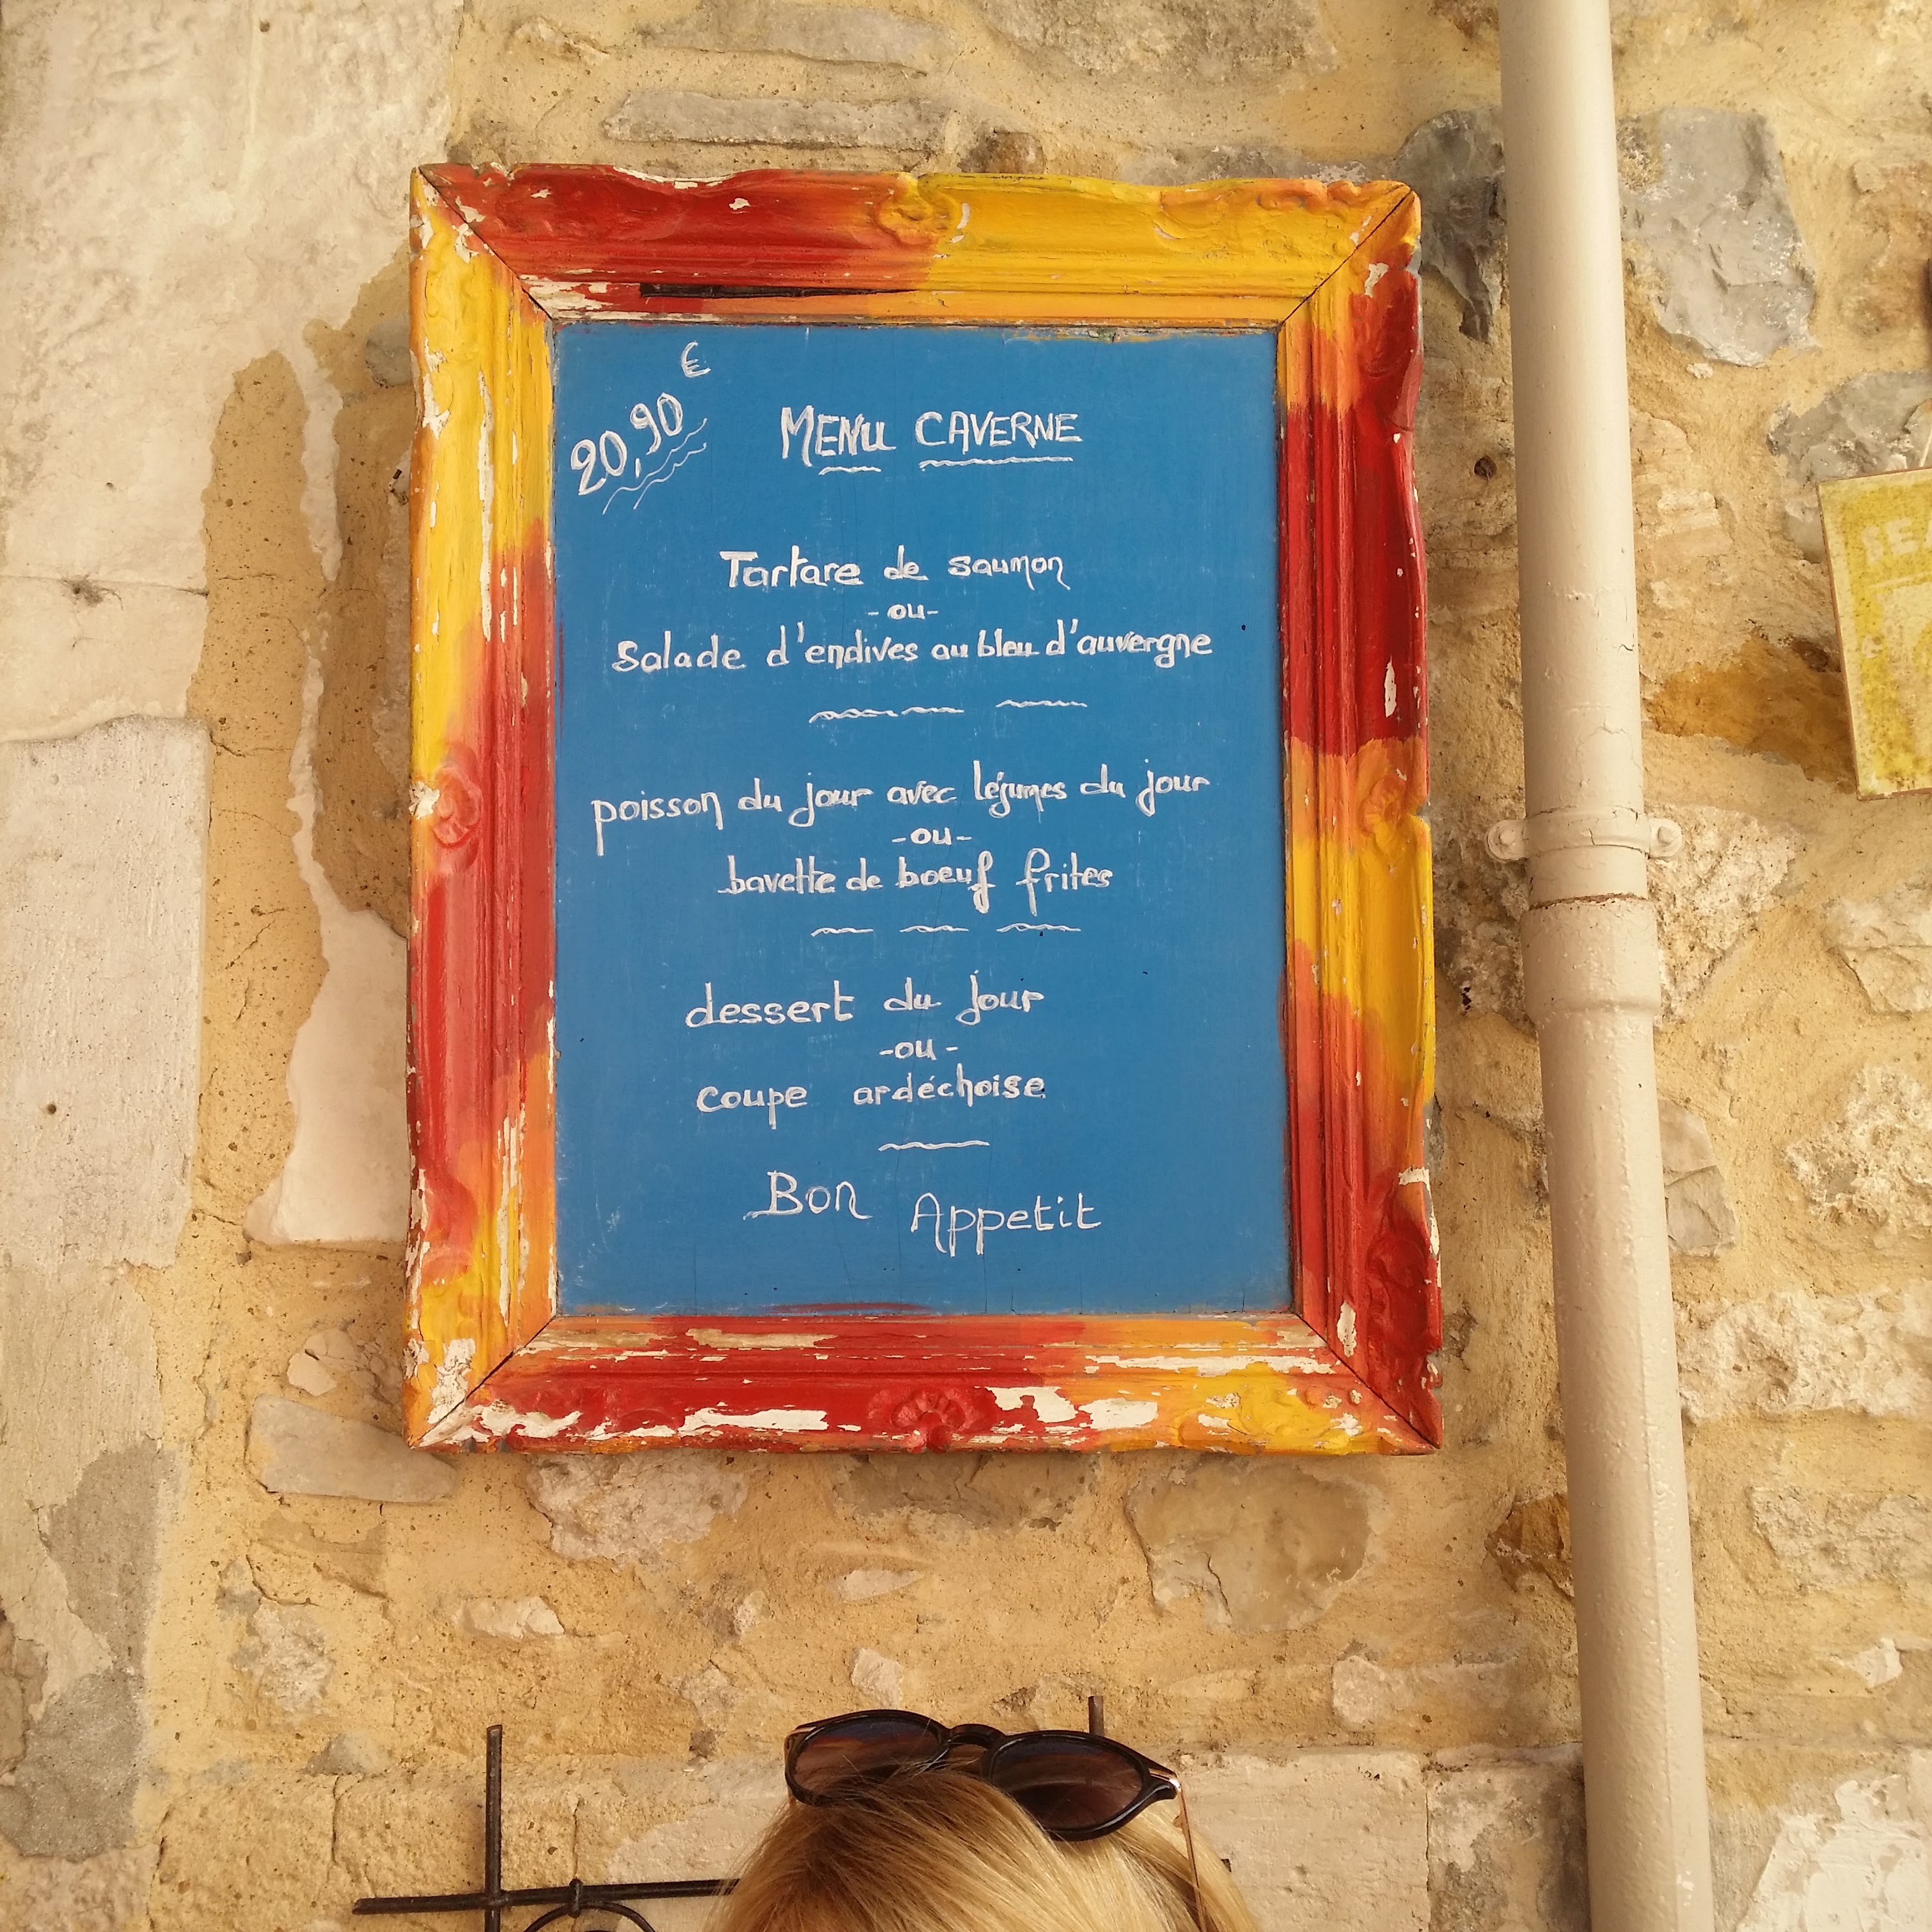 20,90 €
MENU CAVERNE
Tartare de saumon
-ou-
Salade d'endives au bleu d'auvergne
poisson du jour avec légumes du jour
-ou-
bavette de boeuf frites
dessert du jour
-ou-
coupe ardéchoise
Bon Appetit